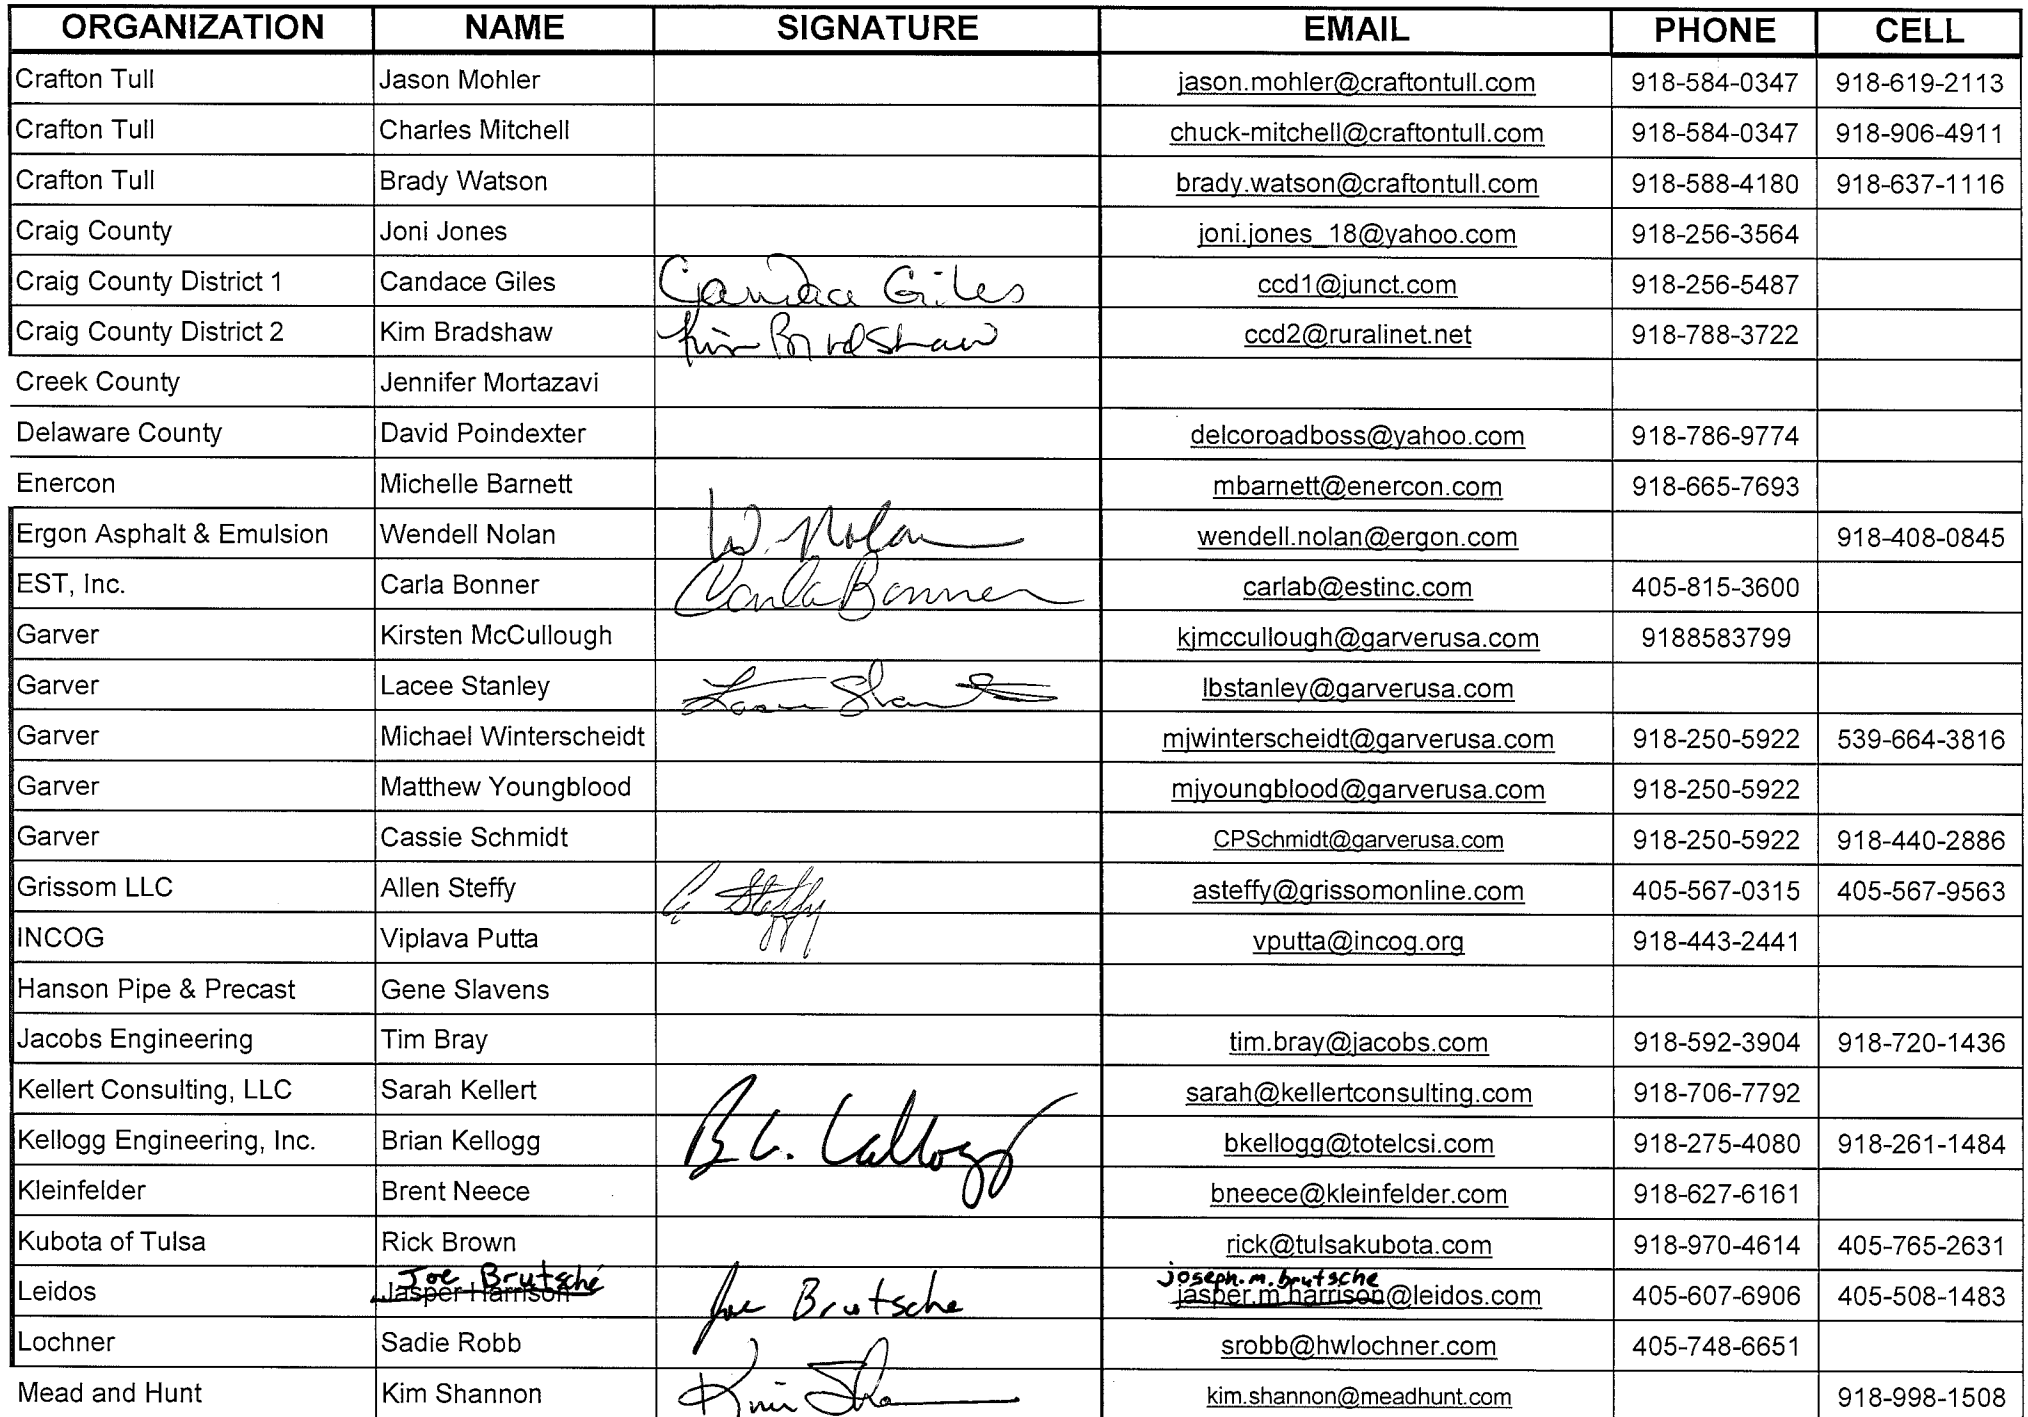 ORGANIZATION NAME SIGNATURE EMAIL PHONE CELL
Crafton Tull Jason Mohler jason.mohler@craftontull.com 918-584-0347 918-619-2113
Crafton Tull Charles Mitchell chuck-mitchell@craftontull.com 918-584-0347 918-906-4911
Crafton Tull Brady Watson brady.watson@craftontull.com 918-588-4180 918-637-1116
Craig County Joni Jones joni.jones_18@yahoo.com 918-256-3564
Craig County District 1 Candace Giles Candace Giles ccd1@junct.com 918-256-5487
Craig County District 2 Kim Bradshaw Kim Bradshaw ccd2@ruralinet.net 918-788-3722
Creek County Jennifer Mortazavi
Delaware County David Poindexter delcoroadboss@yahoo.com 918-786-9774
Enercon Michelle Barnett mbarnett@enercon.com 918-665-7693
Ergon Asphalt & Emulsion Wendell Nolan W. Nolan wendell.nolan@ergon.com 918-408-0845
EST, Inc. Carla Bonner Carla Bonner carlab@estinc.com 405-815-3600
Garver Kirsten McCullough kjmccullough@garverusa.com 9188583799
Garver Lacee Stanley lbstanley@garverusa.com
Garver Michael Winterscheidt mjwinterscheidt@garverusa.com 918-250-5922 539-664-3816
Garver Matthew Youngblood mjyoungblood@garverusa.com 918-250-5922
Garver Cassie Schmidt CPSchmidt@garverusa.com 918-250-5922 918-440-2886
Grissom LLC Allen Steffy A Steffy asteffy@grissomonline.com 405-567-0315 405-567-9563
INCOG Viplava Putta vputta@incog.org 918-443-2441
Hanson Pipe & Precast Gene Slavens
Jacobs Engineering Tim Bray tim.bray@jacobs.com 918-592-3904 918-720-1436
Kellert Consulting, LLC Sarah Kellert sarah@kellertconsulting.com 918-706-7792
Kellogg Engineering, Inc. Brian Kellogg Kellogg bkellogg@totelcsi.com 918-275-4080 918-261-1484
Kleinfelder Brent Neece bneece@kleinfelder.com 918-627-6161
Kubota of Tulsa Rick Brown rick@tulsakubota.com 918-970-4614 405-765-2631
Joe Brutsché joseph.m.brutsche
Leidos Jasper Harrison Joe Brutsche jasper.m.harrison@leidos.com 405-607-6906 405-508-1483
Lochner Sadie Robb srobb@hwlochner.com 405-748-6651
Mead and Hunt Kim Shannon Kim kim.shannon@meadhunt.com 918-998-1508